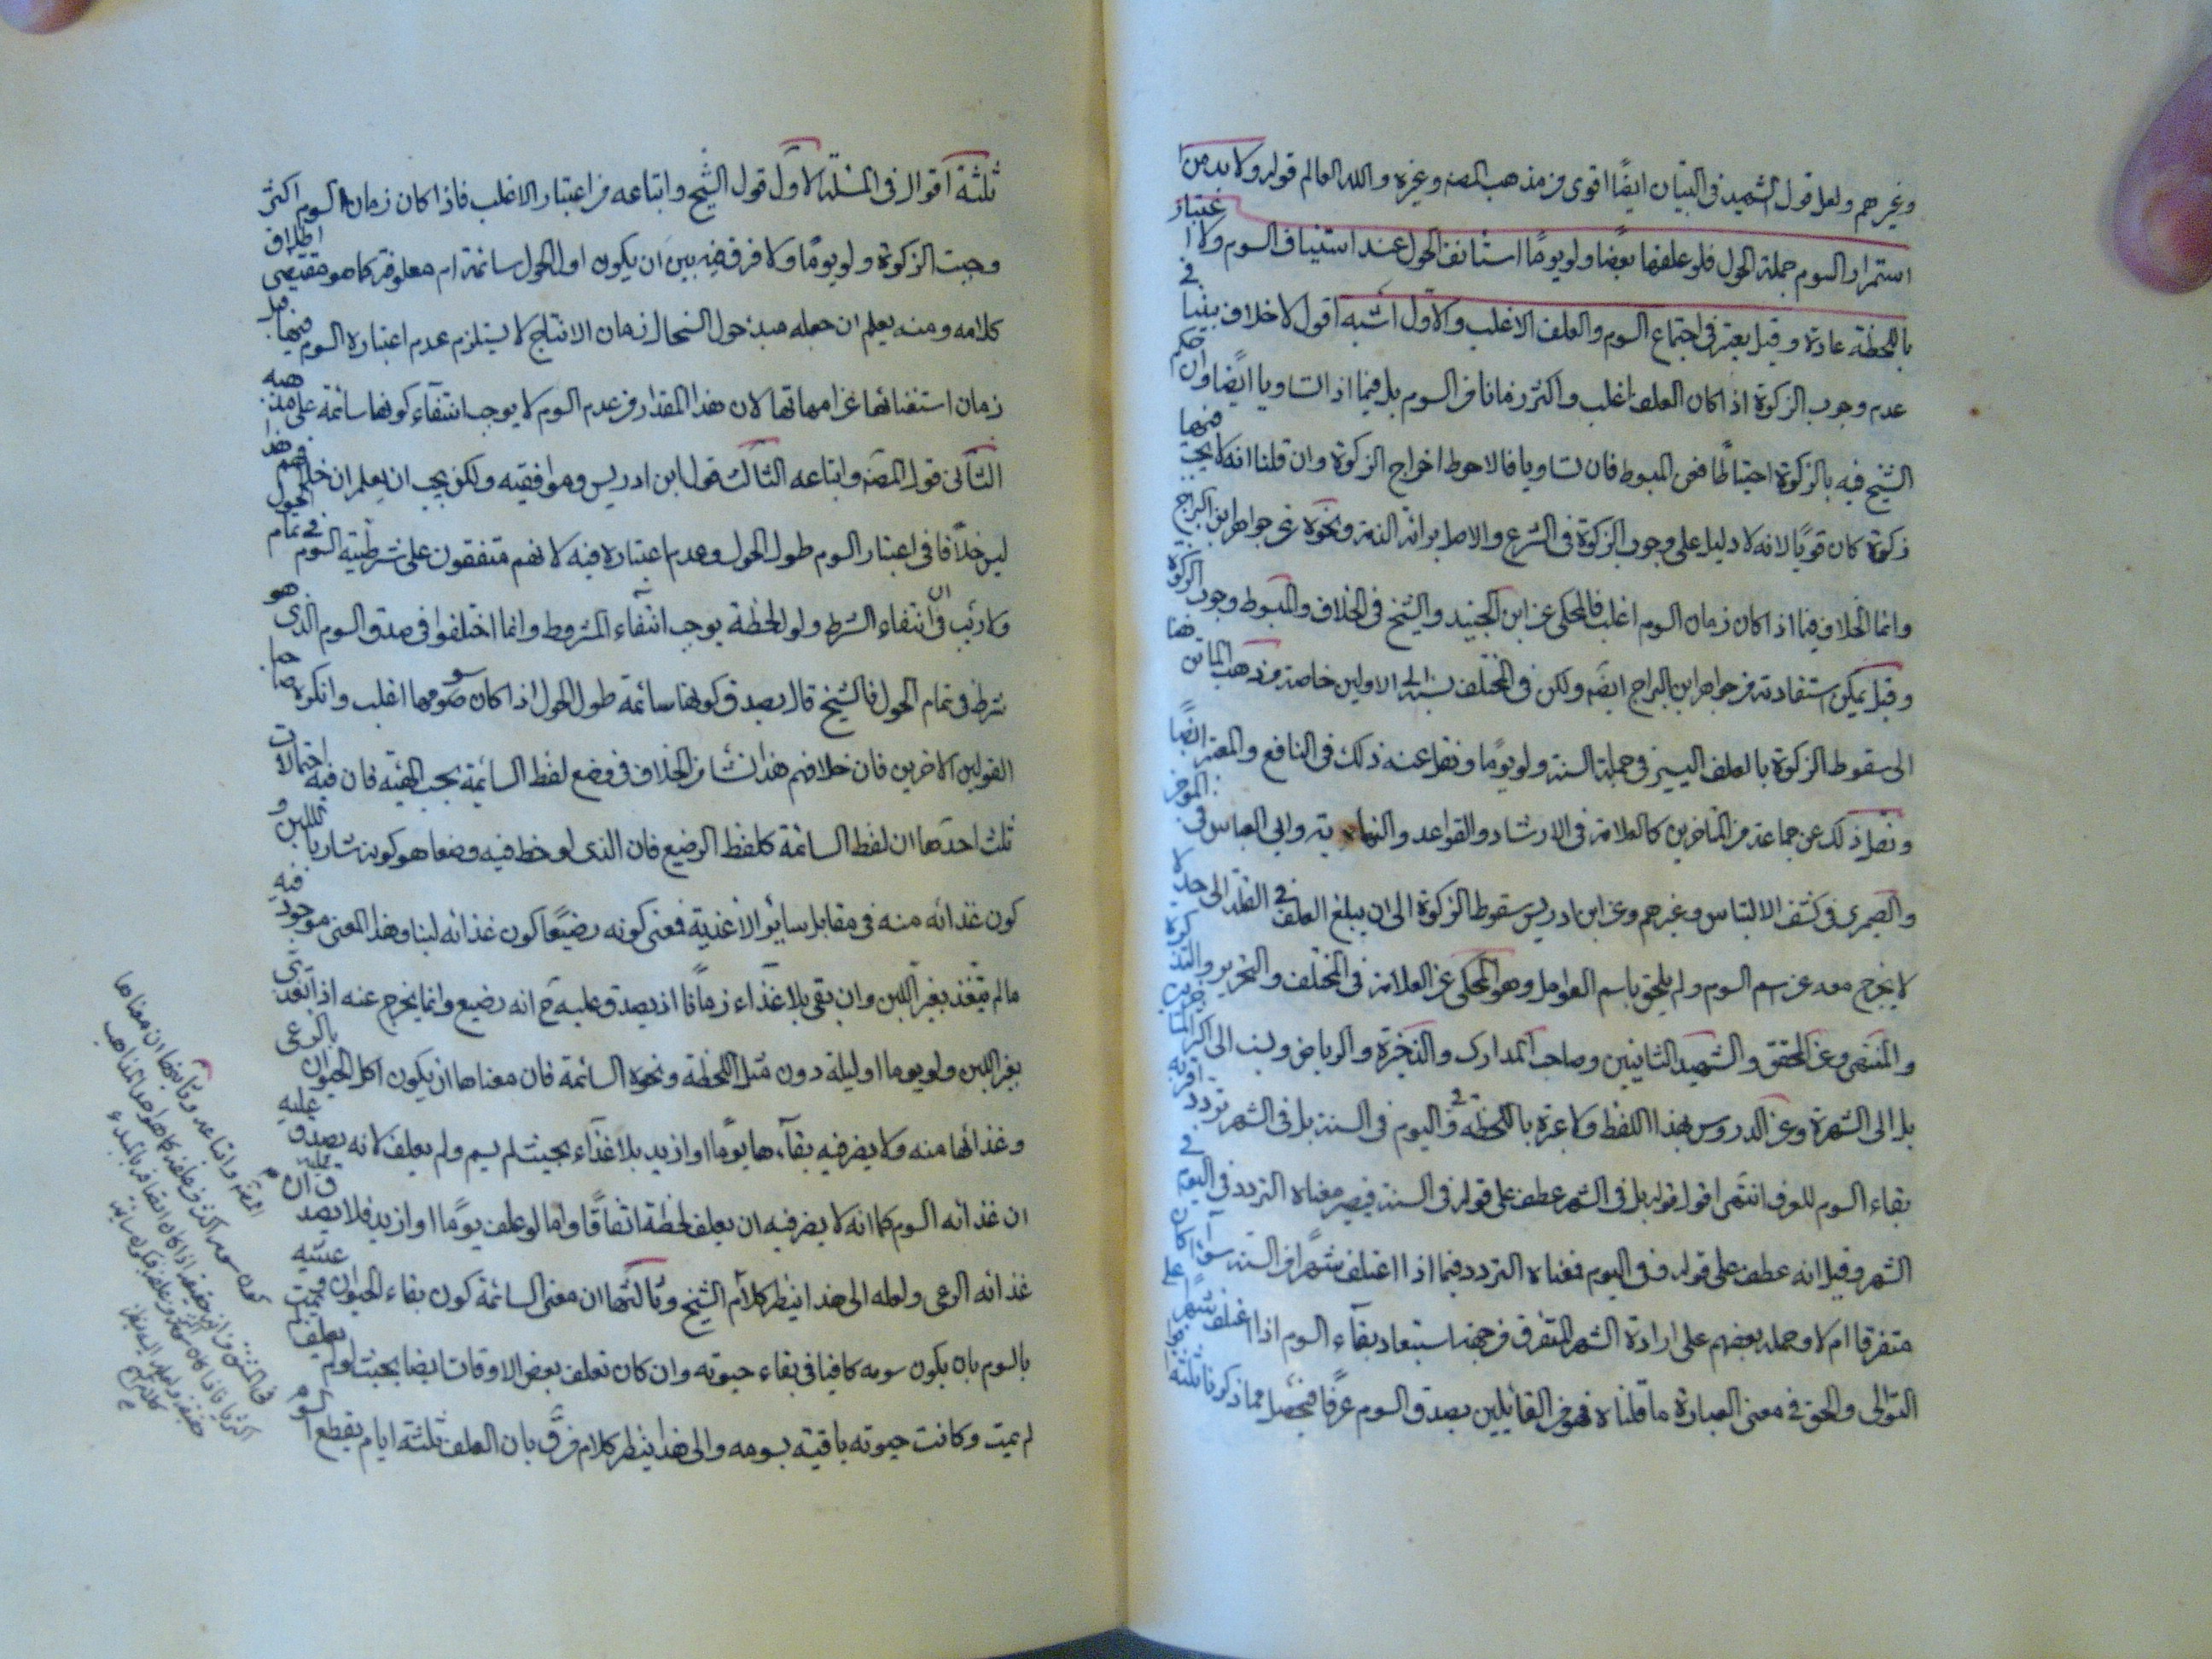 وغيرهم ولعل قول الشهيد في البيان ايضًا اقوى من مذهب المصنف وغيره والله العالم قوله ولا بد من ا
ستمرار السوم جملة الحول فلو علفها بعضًا ولو يومًا استأنف الحول عند استيناف السوم ولا اعتبار
باللحظة عادة وقيل يعتبر في اجتماع السوم والعلف الاغلب والاول اشبه اقول لا خلاف بيننا في
عدم وجوب الزكوة اذا كان العلف اغلب واكثر زمانا من السوم بل فيما اذا تساويا ايضًا وان حكم
الشيخ فيه بالزكوة احتياطًا ففي المبسوط فان تساويا فالاحوط اخراج الزكوة وان قلنا انه لا يجب فيها
زكوة كان قويًا لانه لا دليل على وجوب الزكوة في الشرع والاصل برائة الذمة ونحوه عن جواهر ابن البراج
وانما الخلاف فيما اذا كان زمان السوم اغلب فالمحكي عن ابن الجنيد والشيخ في الخلاف والمبسوط وجوب الزكوة
وقيل يمكن استفادته من جواهر ابن البراج ايضًا ولكن في المختلف نسبه الى الاولين خاصة وذهب الماتن هنا
الى سقوط الزكوة بالعلف اليسير في جملة السنة ولو يومًا ونقل عنه ذلك في النافع والمعتبر ايضًا
ونقل ذلك عن جماعة من المتاخرين كالعلامة في الارشاد والقواعد والنهاية وابي العباس في الموجز
والصيمري في كشف الالتباس وغيرهم وعن ابن ادريس سقوط الزكوة الى ان يبلغ العلف في القلة الى حد لا
لا يخرج معه عن اسم السوم ولم يلحق باسم العوامل وهو المحكي عن العلامة في المختلف والتحرير والتذكرة
والمنتهى وعن المحقق والشهيد الثانيين وصاحب المدارك والذخيرة والرياض ونسب الى اكثر المتاخرين
بل الى الشهرة وعن الدروس بهذا اللفظ ولا عبرة باللحظة وفي اليوم في السنة بل في الشهر تردد اقربه
بقاء السوم للعرف انتهى اقول قوله بل في الشهر عطف على قوله في السنة فيصير معناه التردد في اليوم في
الشهر وقيل انه عطف على قوله وفي اليوم فمعناه التردد فيما اذا اعتلف شهرًا في السنة سواء كان
متفرقا ام لا وحمله بعضهم على ارادة الشهر المتفرق من جهة استبعاد بقاء السوم اذا اعتلف شهرًا على
التوالي والحق في معنى العبارة ما قلناه فهو من القائلين بصدق السوم عرفًا فيحصل مما ذكرنا ثلثة
ثلثة اقوال في المسئلة الاول قول الشيخ واتباعه من اعتبار الاغلب فاذا كان زمان السوم اكثر
وجبت الزكوة ولو يومًا ولا فرق فيه بين ان يكون اول الحول سائمة ام معلوفة كما هو مقتضى اطلاق
كلامه ومنه يعلم ان جعله مبدء حول السخال زمان الانتاج لا يستلزم عدم اعتباره السوم فيها قبل
زمان استغنائها عن امهاتها لان هذا المقدار من عدم السوم لا يوجب انتفاء كونها سائمة على مذهبه
الثاني قول المصنف واتباعه الثالث قول ابن ادريس وموافقيه ولكن يجب ان يعلم ان خلافهم هذا
ليس خلافًا في اعتبار السوم طول الحول وعدم اعتباره فيه لانهم متفقون على شرطية السوم في تمام الحول
ولا ريب في ان انتفاء الشرط ولو لحظة يوجب انتفاء المشروط وانما اختلفوا في صدق السوم الذي هو
شرط في تمام الحول فالشيخ قال بصدق كونها سائمة طول الحول اذا كان سومها اغلب وانكره صاحبا
القولين الاخرين فان خلافهم هذا نشأ من الخلاف في وضع لفظ السائمة بحسب الهيئة فان فيه احتمالات
ثلث احدها ان لفظ السائمة كلفظ الرضيع فان الذي لوحظ فيه وضعا هو كونه شاربا للبن و
كون غذائه منه في مقابل سائر الاغذية فمعنى كونه رضيعًا كون غذائه لبنا وهذا المعنى موجود فيه
ما لم يتغذ بغير اللبن وان بقي بلا غذاء زمانًا اذ يصدق عليه ح انه رضيع وانما يخرج عنه اذا تغذى
بغير اللبن ولو يوما او ليلة دون مثل اللحظة ونحوه السائمة فان معناها ان يكون اكل الحيوان بالرعي
وغذائها منه ولا يضر فيه بقاءها يومًا او ازيد بلا غذاء بحيث لم يسم ولم يعلف لانه يصدق عليه
ان غذائه السوم كما انه لا يضر فيه ان يعلف لحظة اتفاقًا واما لو علف يومًا او ازيد فلا يصدق ان
غذائه الرعي ولعله الى هذا ينظر كلام الشيخ وثالثها ان معنى السائمة كون بقاء الحيوان وعيشه
بالسوم بان يكون سومه كافيا في بقاء حيوته وان كان تعلف بعض الاوقات ايضا بحيث لو لم يعلف
لم يمت وكانت حيوته باقية بسومه والى هذا ينظر كلام من فرق بان العلف ثلثة ايام يقطع السوم
المصنف واتباعه وثانيها ان معناها